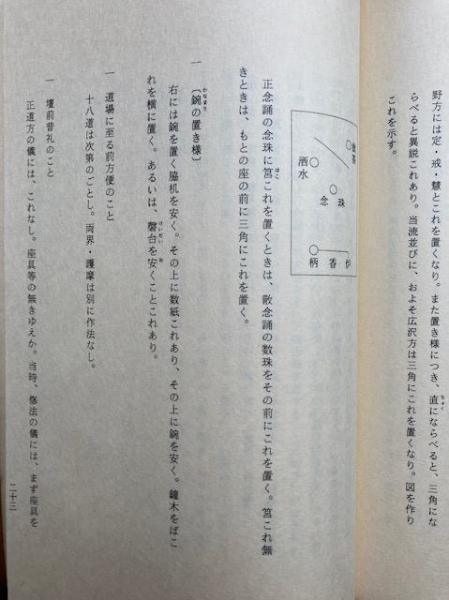 野方には定・戒・慧とこれを置くなり。また置き様につき、直にならべると、三角にな
らべると異説これあり。当流並びに、およそ広沢方は三角にこれを置くなり。図を作り
これを示す。
洒水
念珠
柄香
正念誦の念珠に筥これを置くときは、散念誦の数珠をその前にこれを置く。筥これ無
きときは、もとの座の前に三角にこれを置く。
一 〔鋺の置き様〕
右には鋺を置く脇机を安く。その上に数紙これあり、その上に鋺を安く。鐘木をばこ
れを横に置く。あるいは、磬台を安くことこれあり。
一 道場に至る前方便のこと
十八道は次第のごとし。両界・護摩は別に作法なし。
一 壇前普礼のこと
正道方の儀には、これなし。座具等の無きゆえか。当時、修法の儀には、まず座具を
二十三